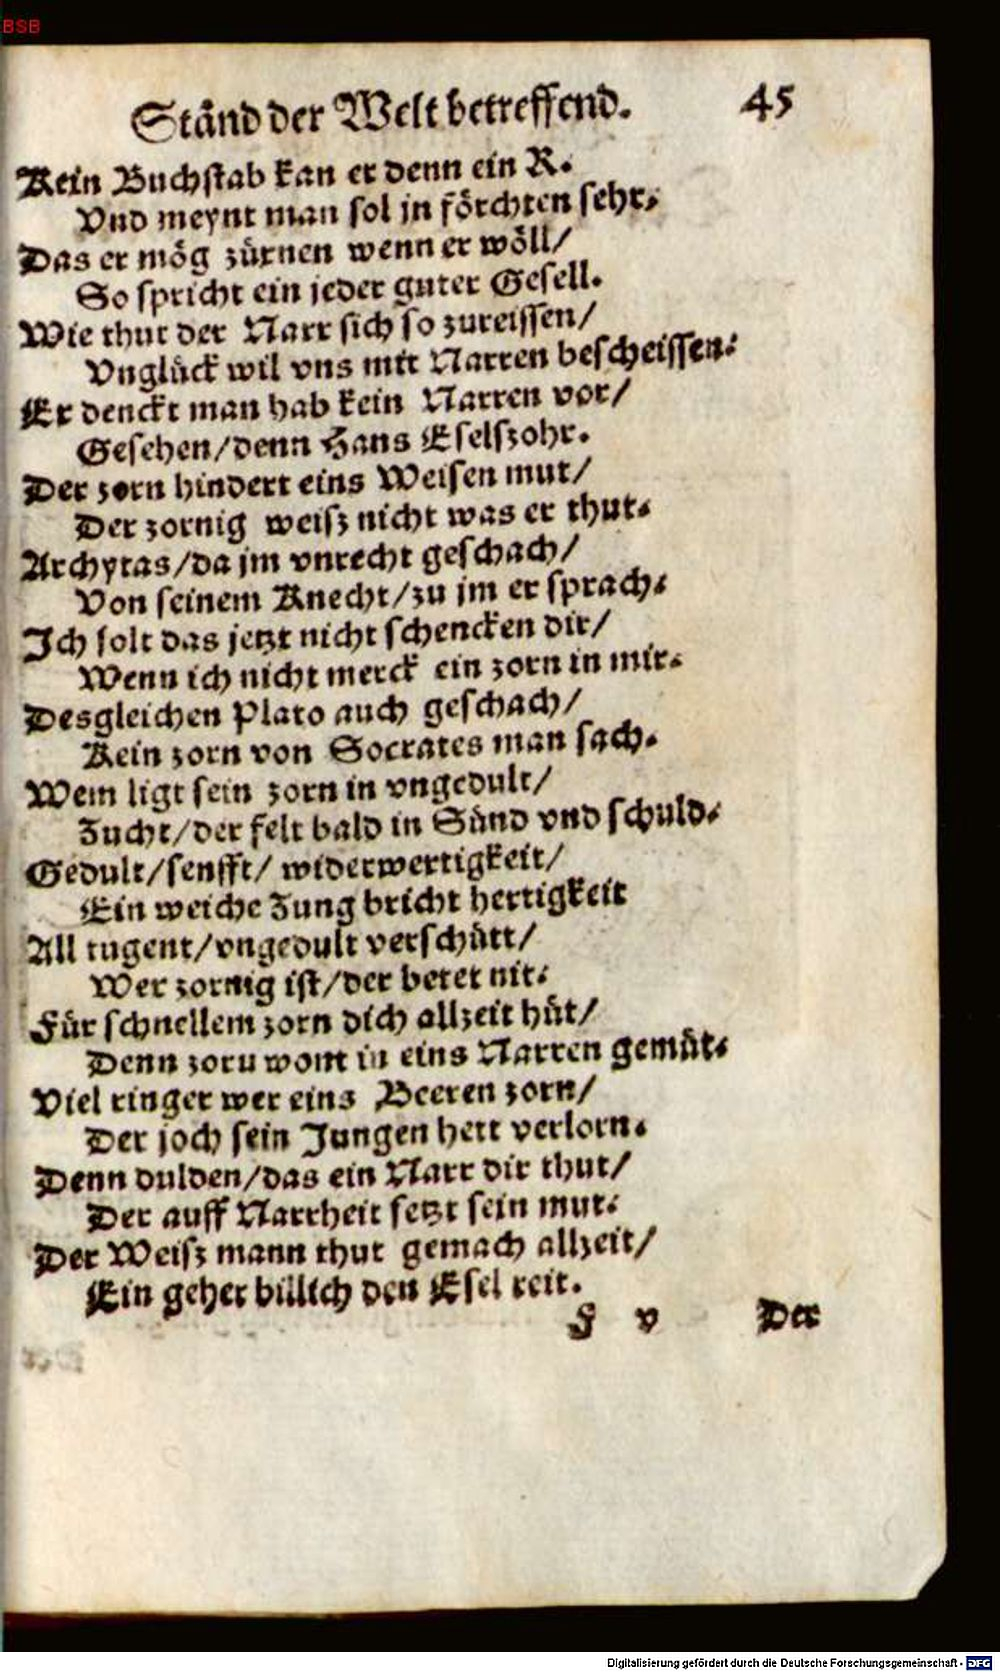 BSB
Ständ der Welt betreffend. 45
Kein Buchstab kan er denn ein R.
Vnd meynt man sol jn förchten sehr.
Das er mög zürnen wenn er wöll/
So spricht ein jeder guter Gesell.
Wie thut der Narr sich so zureissen/
Vnglück wil vns mit Narren bescheissen.
Er denckt man hab kein Narren vor/
Gesehen/denn Hans Eselszohr.
Der zorn hindert eins Weisen mut/
Der zornig weisz nicht was er thut.
Archytas/da jm vnrecht geschach/
Von seinem Knecht/zu jm er sprach.
Ich solt das jetzt nicht schencken dir/
Wenn ich nicht merck ein zorn in mir.
Desgleichen Plato auch geschach/
Kein zorn von Socrates man sach.
Wem ligt sein zorn in vngedult/
Zucht/der felt bald in Sünd vnd schuld.
Gedult/senfft/ widerwertigkeit/
Ein weiche Zung bricht hertigkeit
All tugent/vngedult verschütt/
Wer zornig ist/der betet nit.
Für schnellem zorn dich allzeit hüt/
Denn zoru wont in eins Narren gemüt.
Viel ringer wer eins Beeren zorn/
Der joch sein Jungen hett verlorn.
Denn dulden/das ein Narr dir thut/
Der auff Narrheit setzt sein mut.
Der Weisz mann thut gemach allzeit/
Ein geher billich den Esel reit.
F v Der
Digitalisierung gefördert durch die Deutsche Forschungsgemeinschaft - DFG